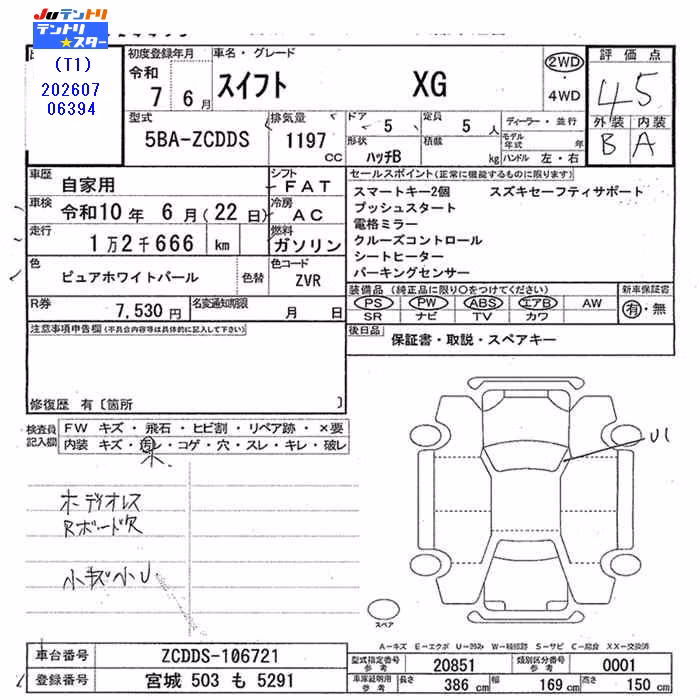 Juテントリ
テントリ★スター
(T1)
202607
06394
初度登録年月
令和
7 6月
車名・グレード
スイフト XG
2WD
4WD
評価点
4.5
外装 内装
B A
型式
5BA-ZCDDS
排気量
1197 cc
ドア 5
定員 5人
形状 ハッチB
積載 kg
ディーラー・並行
モデル年式 年
ハンドル 左・右
車歴 自家用
シフト FAT
車検 令和10年 6月(22日)
冷房 AC
走行 1万2千666 km
燃料 ガソリン
色 ピュアホワイトパール 色替
色コード ZVR
R券 7,530円
名変通知期限 月 日
セールスポイント(正常に機能するものに限ります)
スマートキー2個 スズキセーフティサポート
プッシュスタート
電格ミラー
クルーズコントロール
シートヒーター
パーキングセンサー
装備品(純正品に限り○をつけてください)
新車保証書
PS PW ABS エアB AW
SR ナビ TV カワ
有・無
後日品
保証書・取説・スペアキー
注意事項申告欄(不具合内容等は具体的に記入して下さい)
修復歴 有〔箇所 〕
検査員記入欄
FW キズ・飛石・ヒビ割・リペア跡・×要
内装 キズ・汚レ・コゲ・穴・スレ・キレ・破レ
小
ホディオレス
Rボード欠
小キズ小U
U1
スペア
A-キズ E-エクボ U-凹み W-補修跡 S-サビ C-腐食 XX-交換済
車台番号 ZCDDS-106721
登録番号 宮城 503 も 5291
型式指定番号 参考 20851
類別区分番号 参考 0001
車庫証明用 参考 長さ 386cm 幅 169cm 高さ 150cm